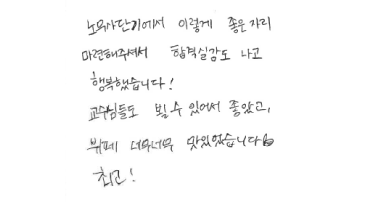 노무사단기에서 이렇게 좋은 자리
마련해주셔서 합격실감도 나고
행복했습니다!
교수님들도 뵐 수 있어서 좋았고,
뷔페 너무너무 맛있었습니다👍
최고!